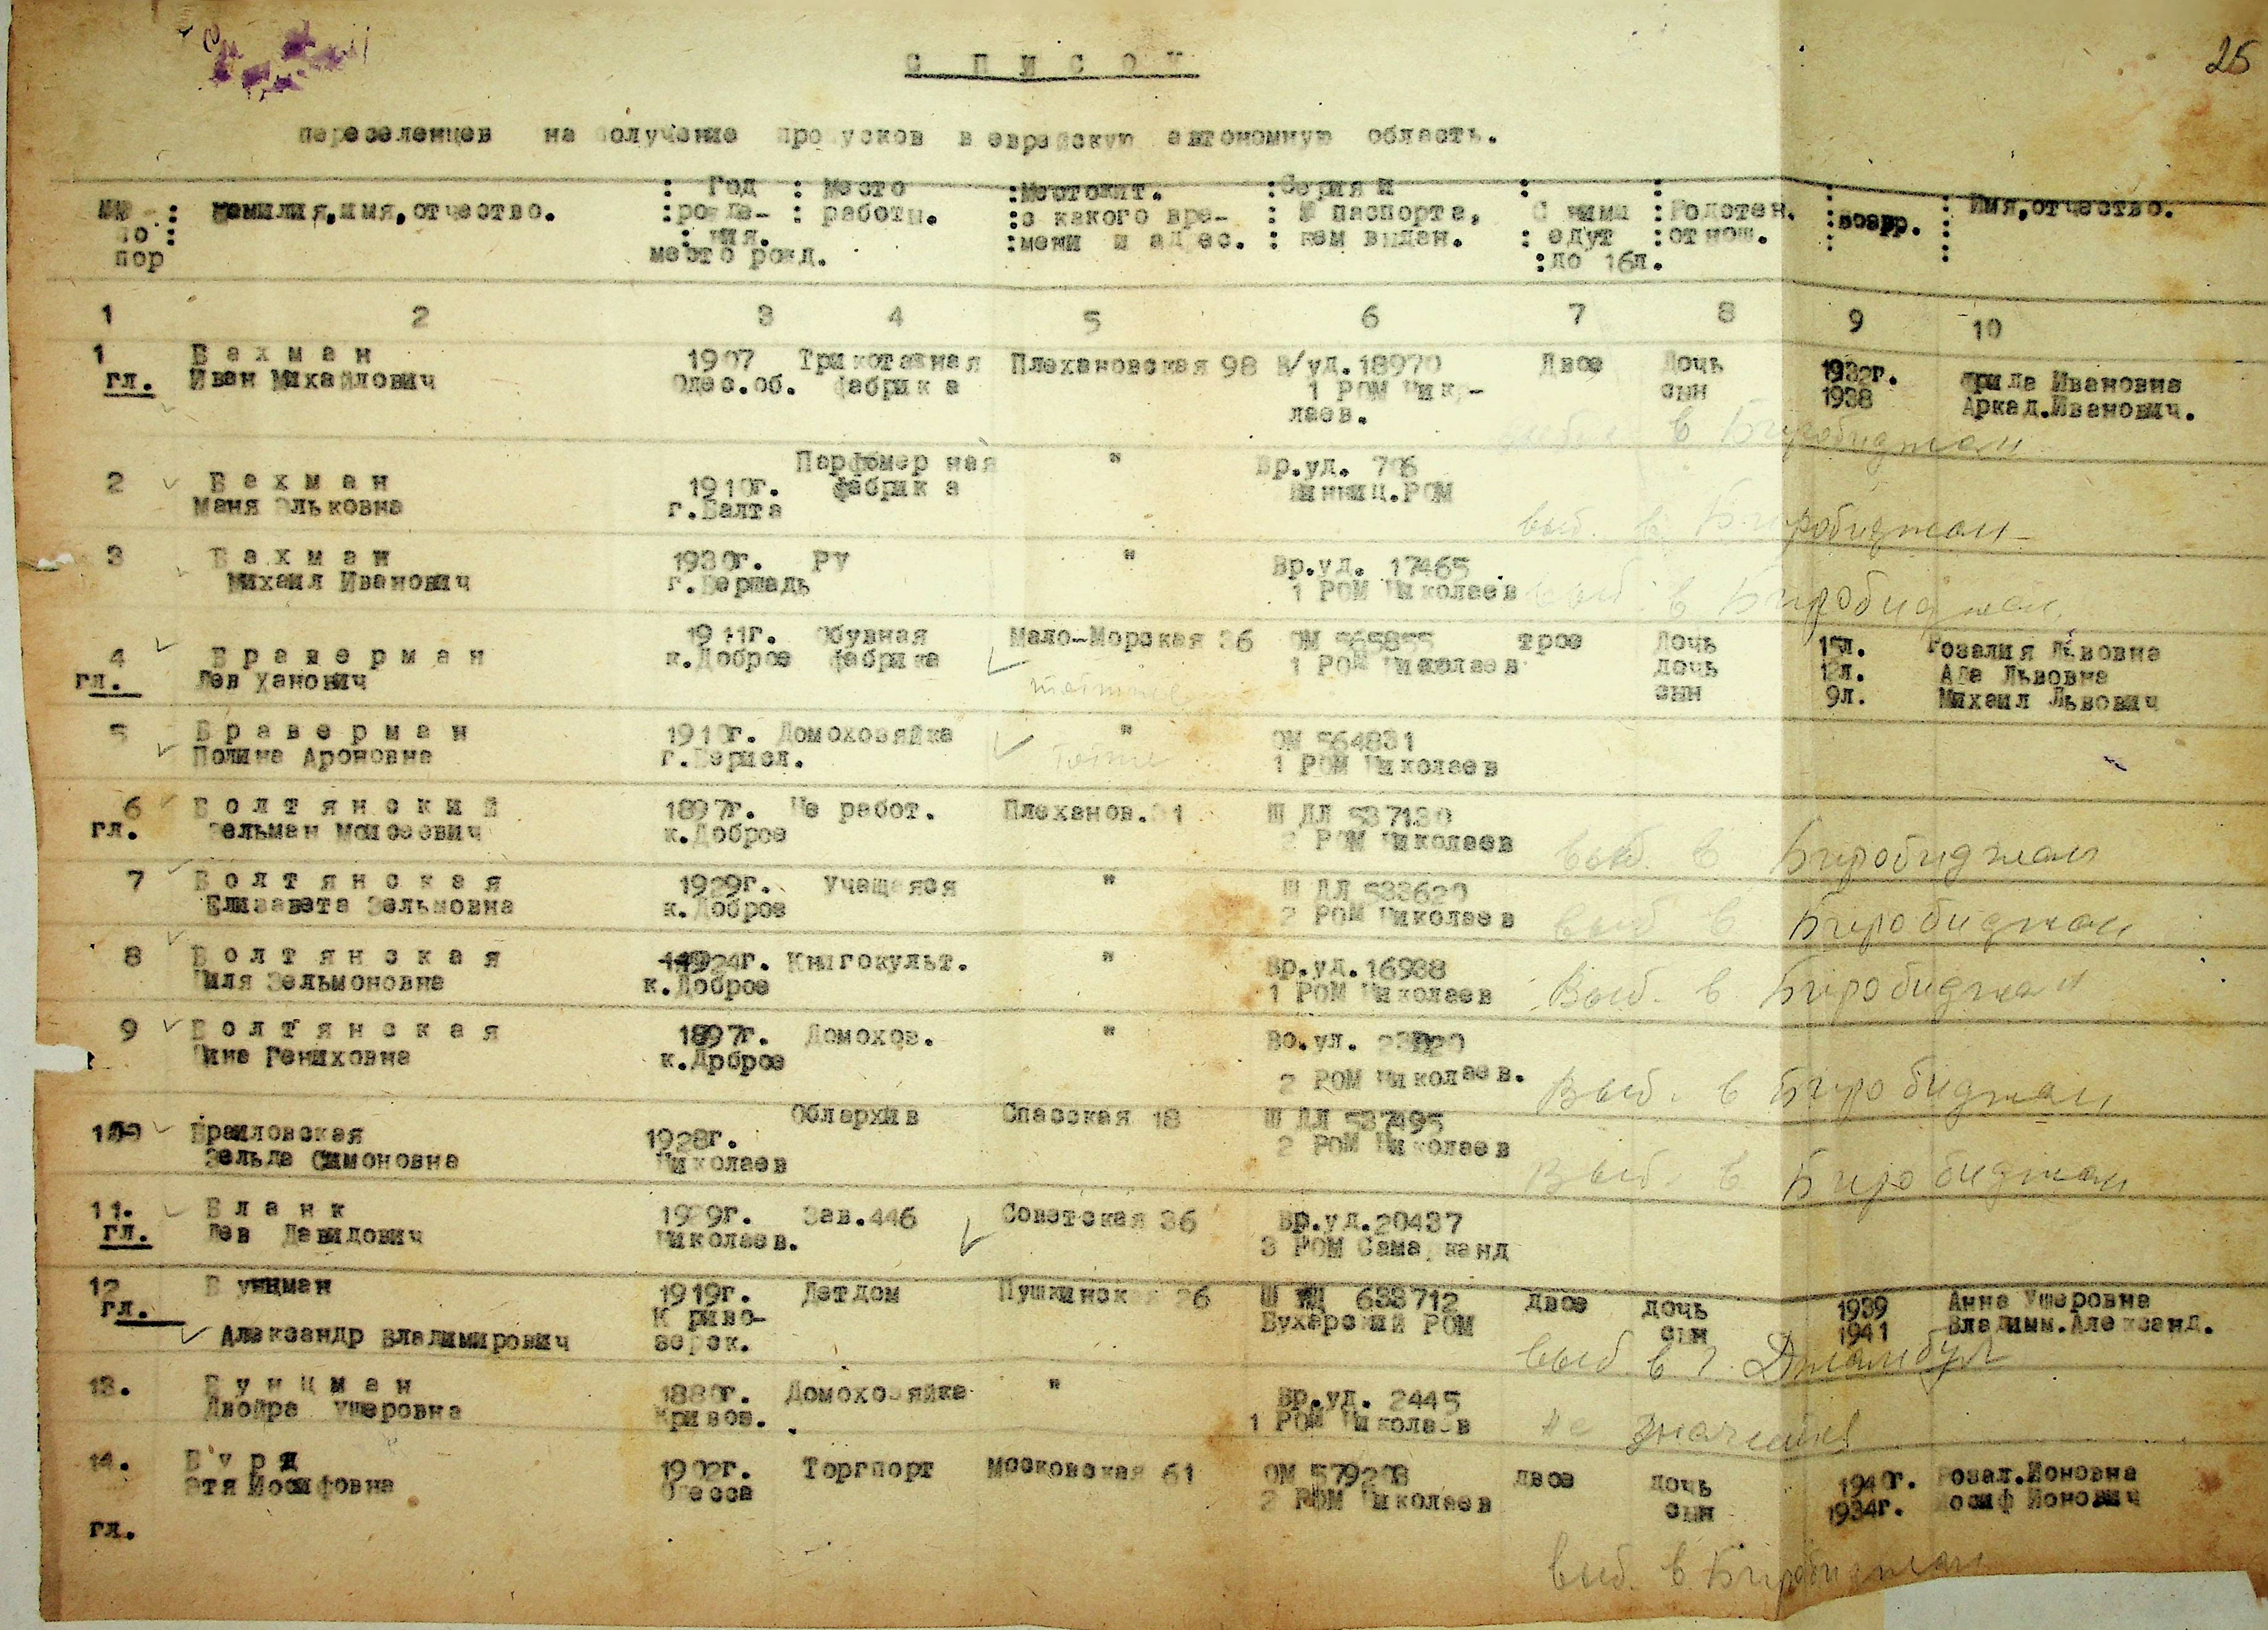 25
С П И С О К
переселенцев на получение пропусков в еврейскую автономную область.
№№ по пор : Фамилия,имя,отчество. : Год рожде-ния. место рожд. : Место работы. : Местожит. с какого вре-мени и адрес. : Серия и № паспорта, кем выдан. : С ними едут до 16л. : Родствен. отнош. : возвр. : Имя,отчество.
1 2 3 4 5 6 7 8 9 10
1 Бахман 1907 Трикотажная Плехановская 98 В/уд.18970 Двое Дочь 1932г. Ивановна
гл. Иван Михайлович Одес.об. фабрика 1 РОМ Нико- сын 1938 Аркад.Иванович.
лаев.
выб. в Биробиджан
Парфюмерная " Вр.уд. 706
2 Бахман 1910г. фабрика Винниц.РОМ
Маня Эльковна г.Балта
выб. в Биробиджан
3 Бахман 1930г. РУ " Вр.уд. 17465
Михаил Иванович г.Бершадь 1 РОМ Николаев
выб. в Биробиджан
1911г. Обувная Мало-Морская 36 ОМ 565855 трое Дочь 15л. Розалия Львовна
4 Браверман к.Доброе фабрика 1 РОМ Николаев дочь 12л. Ада Львовна
гл. Лев Ханович сын 9л. Михаил Львович
5 Браверман 1910г. Домохозяйка " ОМ 564831
Полина Ароновна г.Берисл. 1 РОМ Николаев
6 Волтянский 1897г. Не работ. Плеханов.31 Ш ДЛ 537130
гл. Зельман Моисеевич к.Доброе 2 РОМ Николаев
выб. в Биробиджан
7 Волтянская 1929г. Учащаяся " Ш ДЛ 533620
Елизавета Зельмовна к.Доброе 2 РОМ Николаев
выб. в Биробиджан
8 Волтянская 1924г. Книгокульт. " Вр.уд.16938
Циля Зельмоновна к.Доброе 1 РОМ Николаев
Выб. в Биробиджан
9 Волтянская 1897г. Домохоз. " Во.уд.
Гениховна к.Дрброе 2 РОМ Николаев.
Выб. в Биробиджан
Облархив Спасская 18 Ш ДЛ 537495
10 Браиловская 1928г. 2 РОМ Николаев
Зельда Симоновна Николаев
Выб. в Биробиджан
11. Бланк 1929г. Зав.446 Советская 36 Вр.уд.20437
гл. Лев Давидович Николаев. 3 РОМ Самарканд
12 Бунцман 1919г. Детдом Пушкинская 26 Ш 638712 двое дочь 1939 Анна Ушеровна
гл. Криво- Бухарский РОМ сын 1941 Владим.Александ.
Александр Владимирович
выб. в г. Джамбул
13. Бунцман 1880г. Домохозяйка " Вр.уд. 2445
Двойра Ушеровна Кривоз. 1 РОМ Николаев
не значится
14. Бурд 1902г. Торгпорт Московская 61 ОМ 579208 двое дочь 1940г. Розал.Ионовна
Этя Иосифовна Одесса 2 РОМ Николаев сын 1934г. Иосиф Ионович
гл.
выб. в Биробиджан